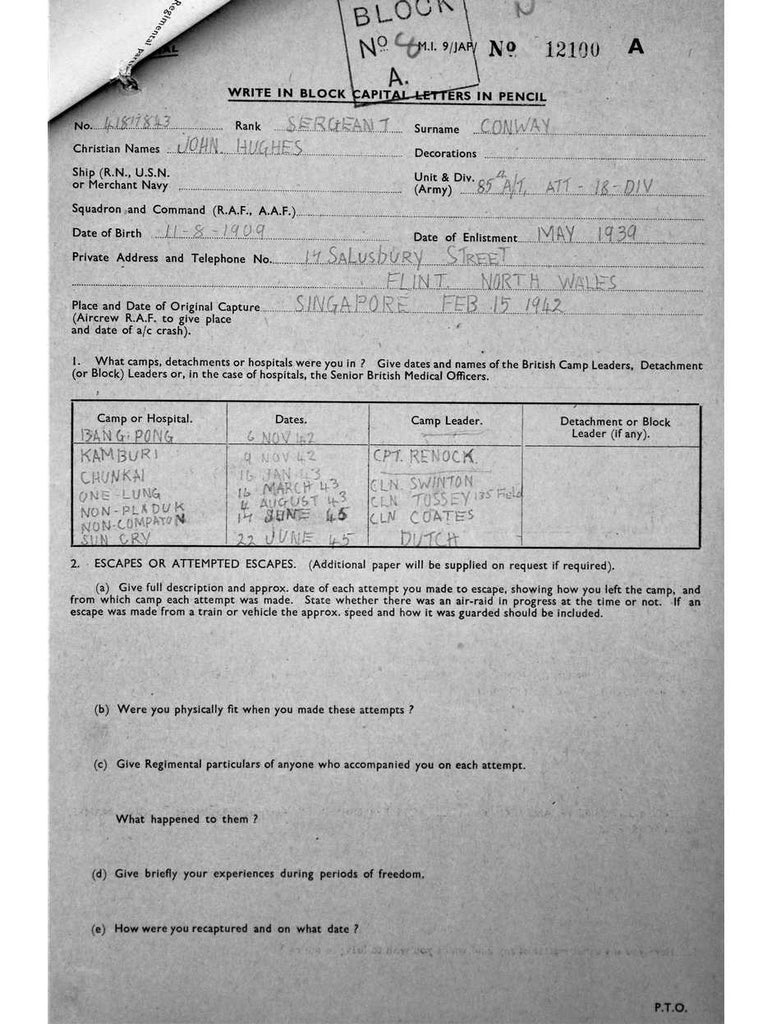 Regimental Par
BLOCK
No 4 M.I. 9/JAP/ No 12100 A
A.
WRITE IN BLOCK CAPITAL LETTERS IN PENCIL
No. Rank SERGEANT Surname CONWAY
Christian Names JOHN HUGHES Decorations
Ship (R.N., U.S.N. or Merchant Navy Unit & Div. (Army) 85th A/T, ATT - 18 - DIV
Squadron and Command (R.A.F., A.A.F.)
Date of Birth 11-8-1909 Date of Enlistment MAY 1939
Private Address and Telephone No. SALUSBURY STREET
FLINT. NORTH WALES
Place and Date of Original Capture SINGAPORE FEB 15 1942
(Aircrew R.A.F. to give place
and date of a/c crash).
1. What camps, detachments or hospitals were you in ? Give dates and names of the British Camp Leaders, Detachment
(or Block) Leaders or, in the case of hospitals, the Senior British Medical Officers.
Camp or Hospital. Dates. Camp Leader. Detachment or Block
Leader (if any).
BANGIPONG 6 NOV 42
KAMBURI 9 NOV 42 CPT. RENOCK.
CHUNKAI 16 JAN 43
ONE-LUNG 16 MARCH 43 CLN. SWINTON
NON-PLADUK 4 AUGUST 43 CLN TOSSEY 135 Field
NON-COMPATON 14 JUNE 45 CLN COATES
SUN CRY 22 JUNE 45 DUTCH
2. ESCAPES OR ATTEMPTED ESCAPES. (Additional paper will be supplied on request if required).
(a) Give full description and approx. date of each attempt you made to escape, showing how you left the camp, and
from which camp each attempt was made. State whether there was an air-raid in progress at the time or not. If an
escape was made from a train or vehicle the approx. speed and how it was guarded should be included.
(b) Were you physically fit when you made these attempts ?
(c) Give Regimental particulars of anyone who accompanied you on each attempt.
What happened to them ?
(d) Give briefly your experiences during periods of freedom.
(e) How were you recaptured and on what date ?
P.T.O.